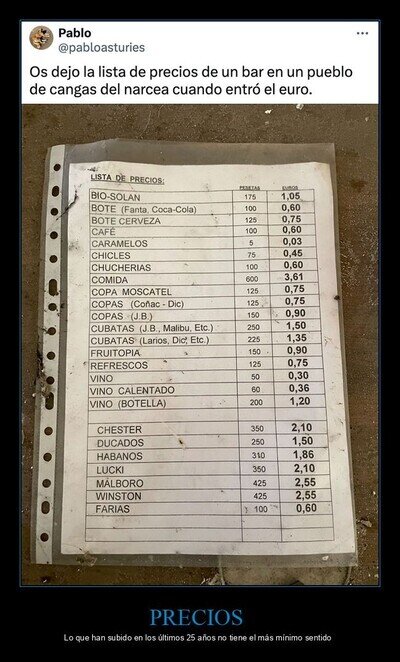 Pablo
@pabloasturies
Os dejo la lista de precios de un bar en un pueblo
de cangas del narcea cuando entró el euro.
LISTA DE PRECIOS:
PESETAS EUROS
BIO-SOLAN 175 1,05
BOTE (Fanta, Coca-Cola) 100 0,60
BOTE CERVEZA 125 0,75
CAFÉ 100 0,60
CARAMELOS 5 0,03
CHICLES 75 0,45
CHUCHERIAS 100 0,60
COMIDA 600 3,61
COPA MOSCATEL 125 0,75
COPAS (Coñac - Dic) 125 0,75
COPAS (J.B.) 150 0,90
CUBATAS (J.B., Malibu, Etc.) 250 1,50
CUBATAS (Larios, Dic, Etc.) 225 1,35
FRUITOPIA 150 0,90
REFRESCOS 125 0,75
VINO 50 0,30
VINO CALENTADO 60 0,36
VINO (BOTELLA) 200 1,20
CHESTER 350 2,10
DUCADOS 250 1,50
HABANOS 310 1,86
LUCKI 350 2,10
MALBORO 425 2,55
WINSTON 425 2,55
FARIAS 100 0,60
PRECIOS
Lo que han subido en los últimos 25 años no tiene el más mínimo sentido